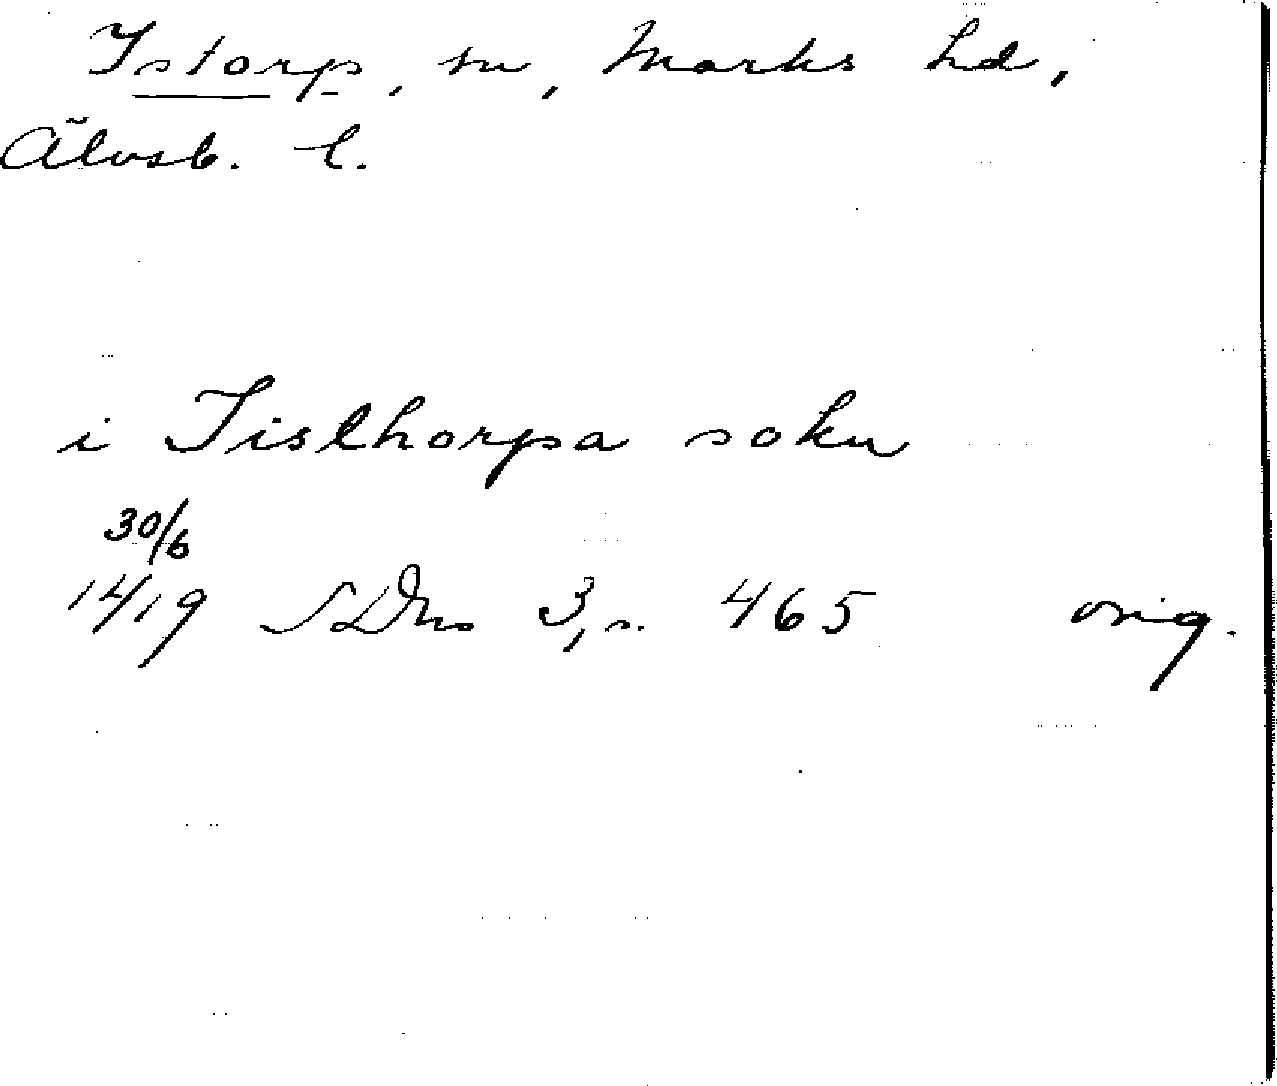 Istorp, sn, Marks hd,
Älvsb. l.
i Jislhorpa sokn
30/6
14/19 SDns 3, s. 465 orig.